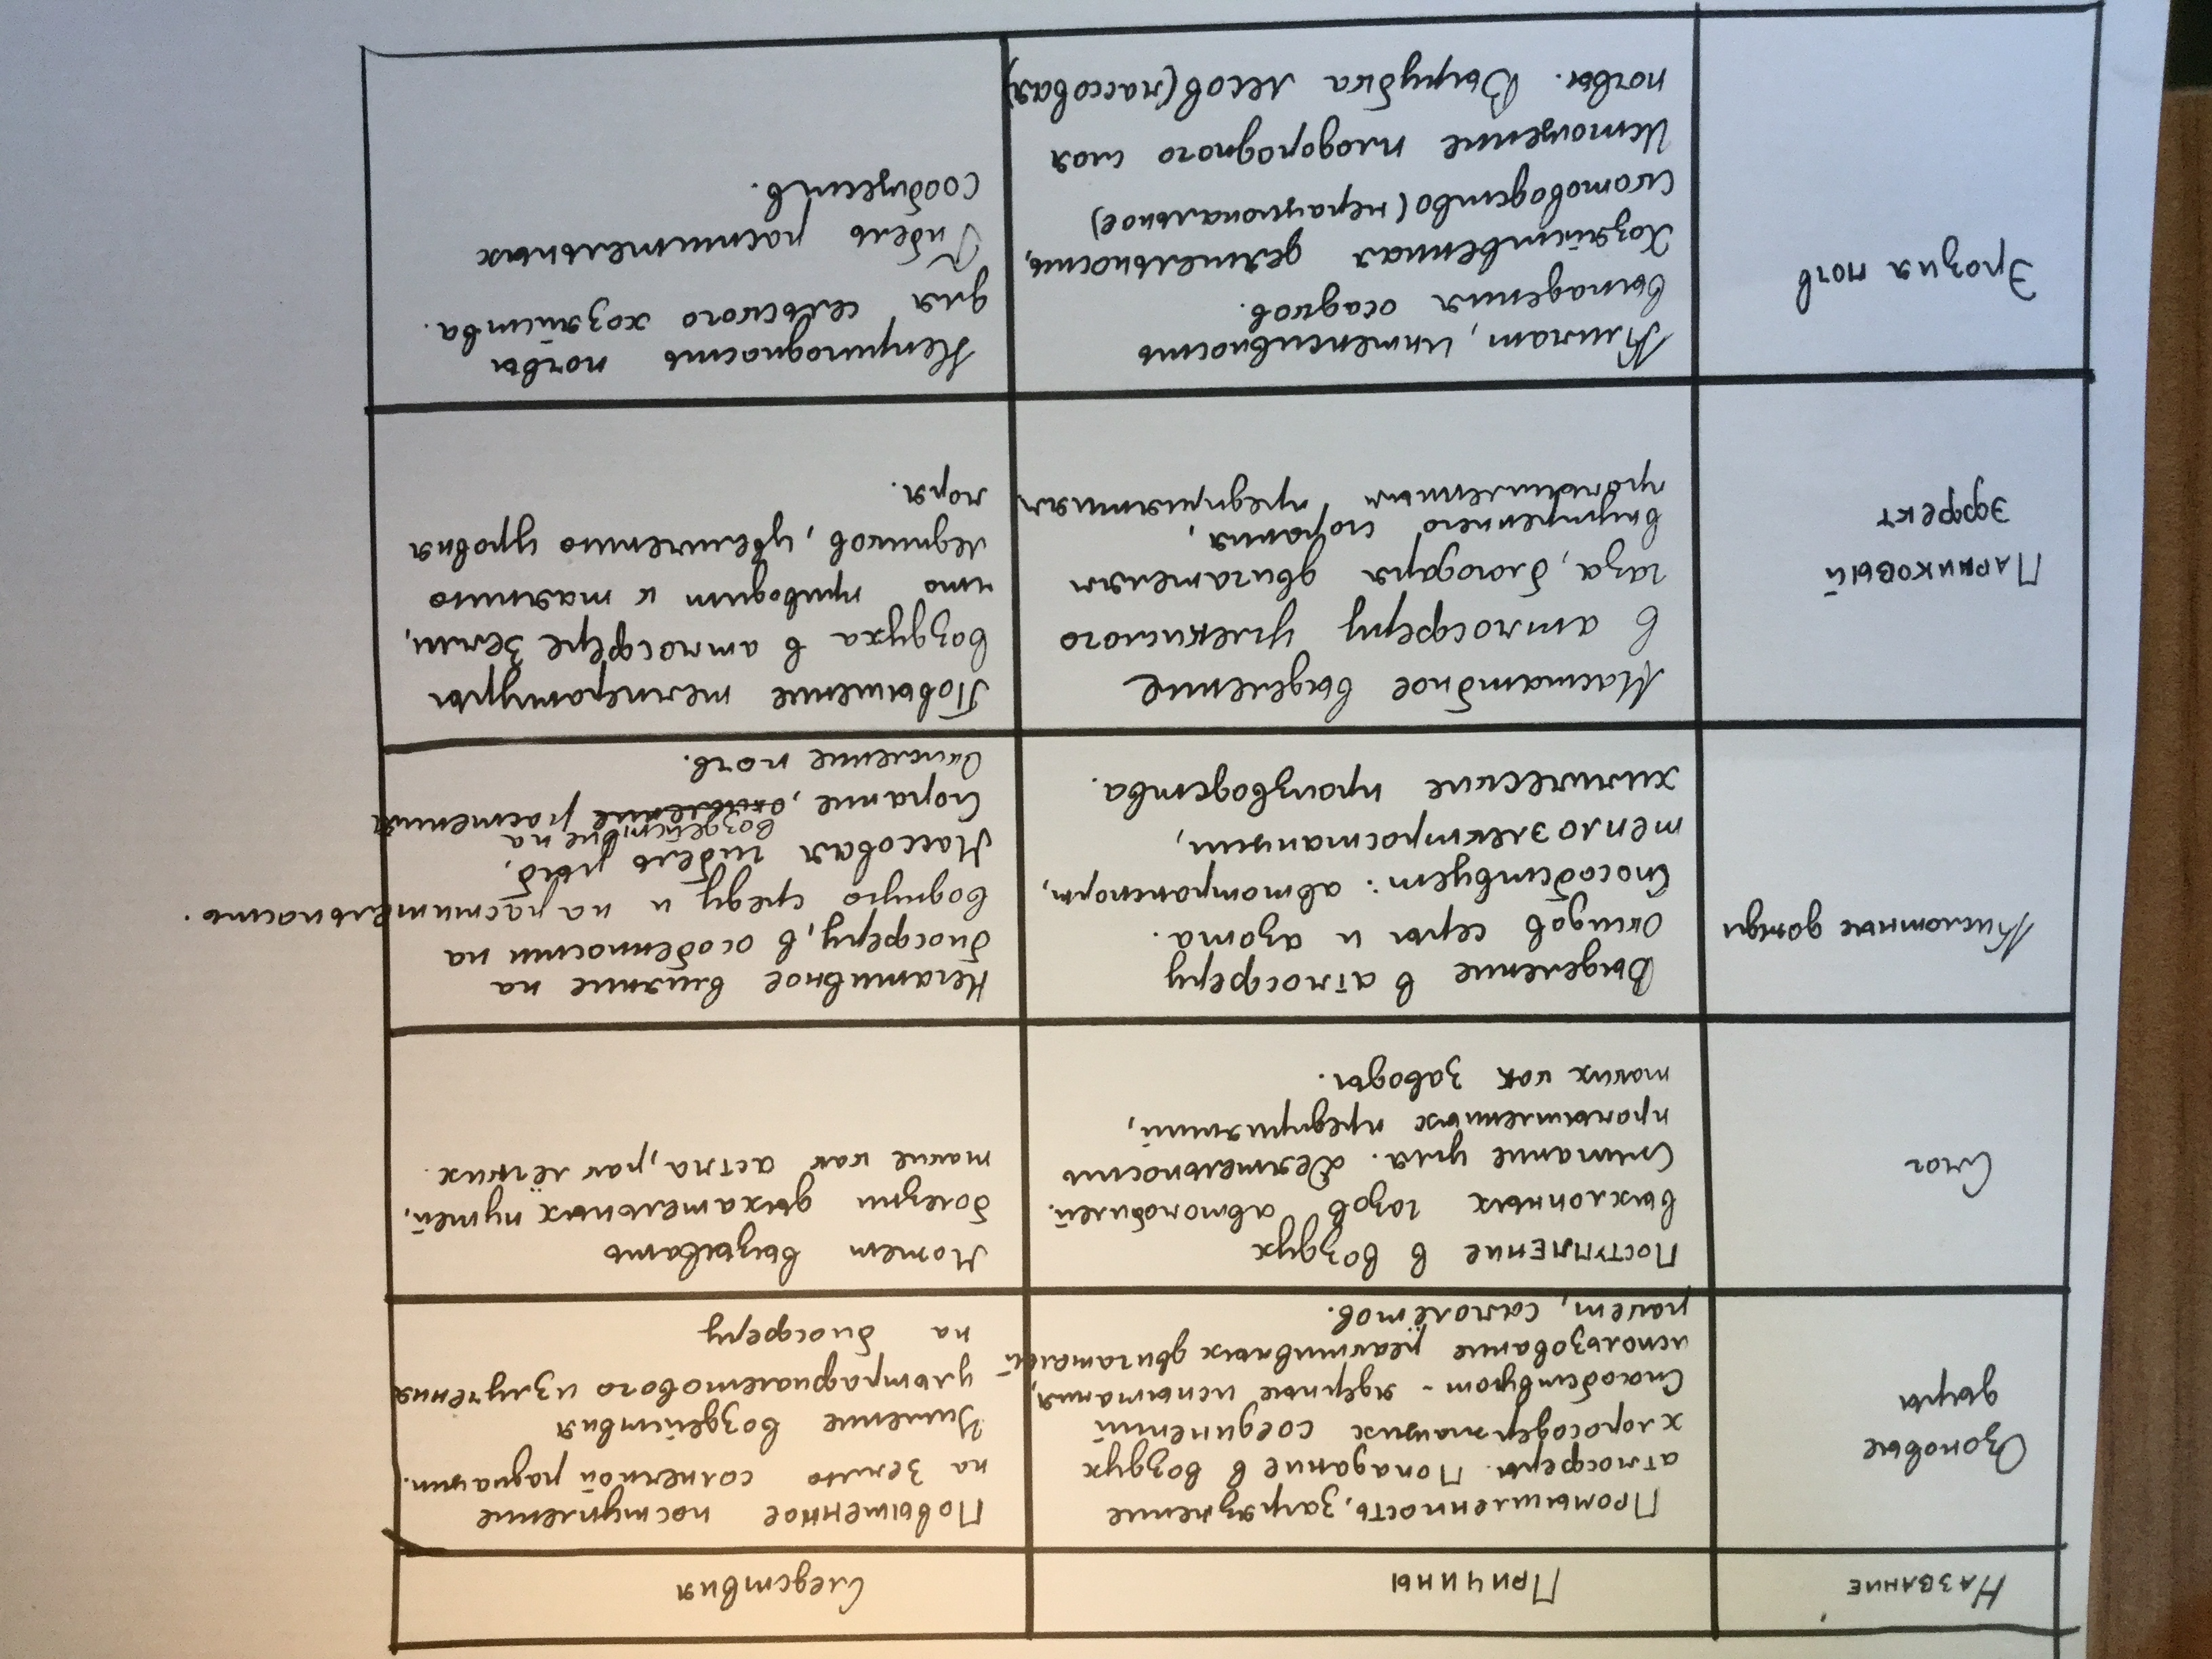 Название
Причины
Следствия
Озоновые
дыры
Промышленность, загрязнение
атмосферы. Попадание в воздух
хлоросодержащих соединений
Способствуют - ядерные испытания,
использование реактивных двигателей
ракет, самолётов.
Повышенное поступление
на землю солнечной радиации.
Усиление воздействия
ультрафиалетового излучения
на биосферу
Смог
Поступление в воздух
выхлопных газов автомобилей.
Сжигание угля. Деятельность
промышленных предприятий,
таких как заводы.
Может вызывать
болезни дыхательных путей,
такие как астма, рак лёгких.
Кислотные дожди
Выделение в атмосферу
оксидов серы и азота.
Способствует: автотранспорт,
теплоэлектростанции,
химические производства.
Негативное влияние на
биосферу, в особенности на
водную среду и на растительность.
Массовая гибель рыб,
воздействие на
Сгорание, растения
Окисление почв.
Парниковый
эффект
Масштабное выделение
в атмосферу углекислого
газа, благодаря двигателям
внутреннего сгорания,
промышленным предприятиям
Повышение температуры
воздуха в атмосфере Земли,
что приводит к таянию
ледников, увеличению уровня
моря.
Эрозия почв
Климат, интенсивность
выпадения осадков.
Хозяйственная деятельность,
скотоводство (нерациональное)
Истощение плодородного слоя
почвы. Вырубка лесов (массовая)
Непригодность почвы
для сельского хозяйства.
Гибель растительных
сообществ.